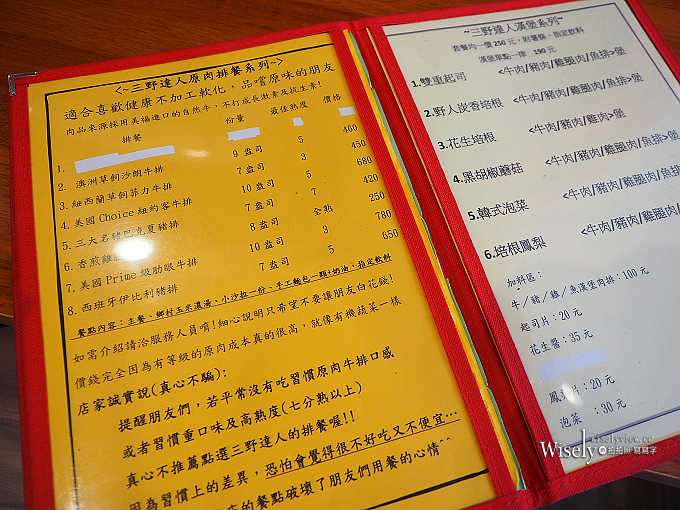 <~三野達人原肉排餐系列~>
適合喜歡健康不加工軟化，品嚐原味的朋友
肉品來源採用美福進口的自然牛，不打成長激素及抗生素!
排餐 份量 最佳熟度 價格
1.
2. 澳洲草飼沙朗牛排 9 盎司 5 460
3. 紐西蘭草飼菲力牛排 7 盎司 3 450
4. 美國 Choice 紐約客牛排 10 盎司 5 680
5. 三大名豬巴克夏豬排 7 盎司 7 420
6. 香煎雞 8 盎司 全熟 250
7. 美國 Prime 級肋眼牛排 10 盎司 3 780
8. 西班牙伊比利豬排 7 盎司 5 650
餐點內容：主餐、鄉村玉米濃湯、小沙拉一份、手工麵包一顆+奶油、指定飲料
如需介紹請洽服務人員唷!細心說明只希望不要讓朋友白花錢!
價錢完全因為有等級的原肉成本真的很高，就像有機蔬菜一樣
店家誠實說(真心不騙):
提醒朋友們，若平常沒有吃習慣原肉牛排口感
或者習慣重口味及高熟度(七分熟以上)
真心不推薦點選三野達人的排餐喔!!
因為習慣上的差異，恐怕會覺得很不好吃又不便宜…
的餐點破壞了朋友們用餐的心情^^
~三野達人漢堡系列~
套餐均一價 250 元，附薯條、指定飲料
漢堡單點一律 190 元
1.雙重起司 <牛肉/豬肉/雞腿肉/魚排>堡
2.野人淡香培根 <牛肉/豬肉/雞腿肉/魚排>堡
3.花生培根 <牛肉/豬肉/雞腿肉>堡
4.黑胡椒蘑菇 <牛肉/豬肉/雞腿肉/魚排>
5.韓式泡菜 <牛肉/豬肉/雞腿肉/魚
6.培根鳳梨 <牛肉/豬肉/雞腿肉/
加料區：
牛／豬／雞／魚漢堡肉排：100 元
起司片：20 元
花生醬：35 元
鳳梨片：20 元
泡菜 ：30 元
wiselyview.cc
Wisely 拍拍照寫寫字